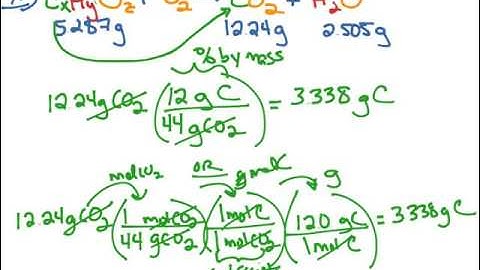 CxHyOz + O2 → CO2 + H2O
5.287g 12.24g 2.505g
% by mass
12.24gCO2 (12gC / 44gCO2) = 3.338gC
molCO2 OR g
12.24gCO2 (1molCO2 / 44gCO2) (1molC / 1molCO2) (120gC / 1molC) = 3.338gC